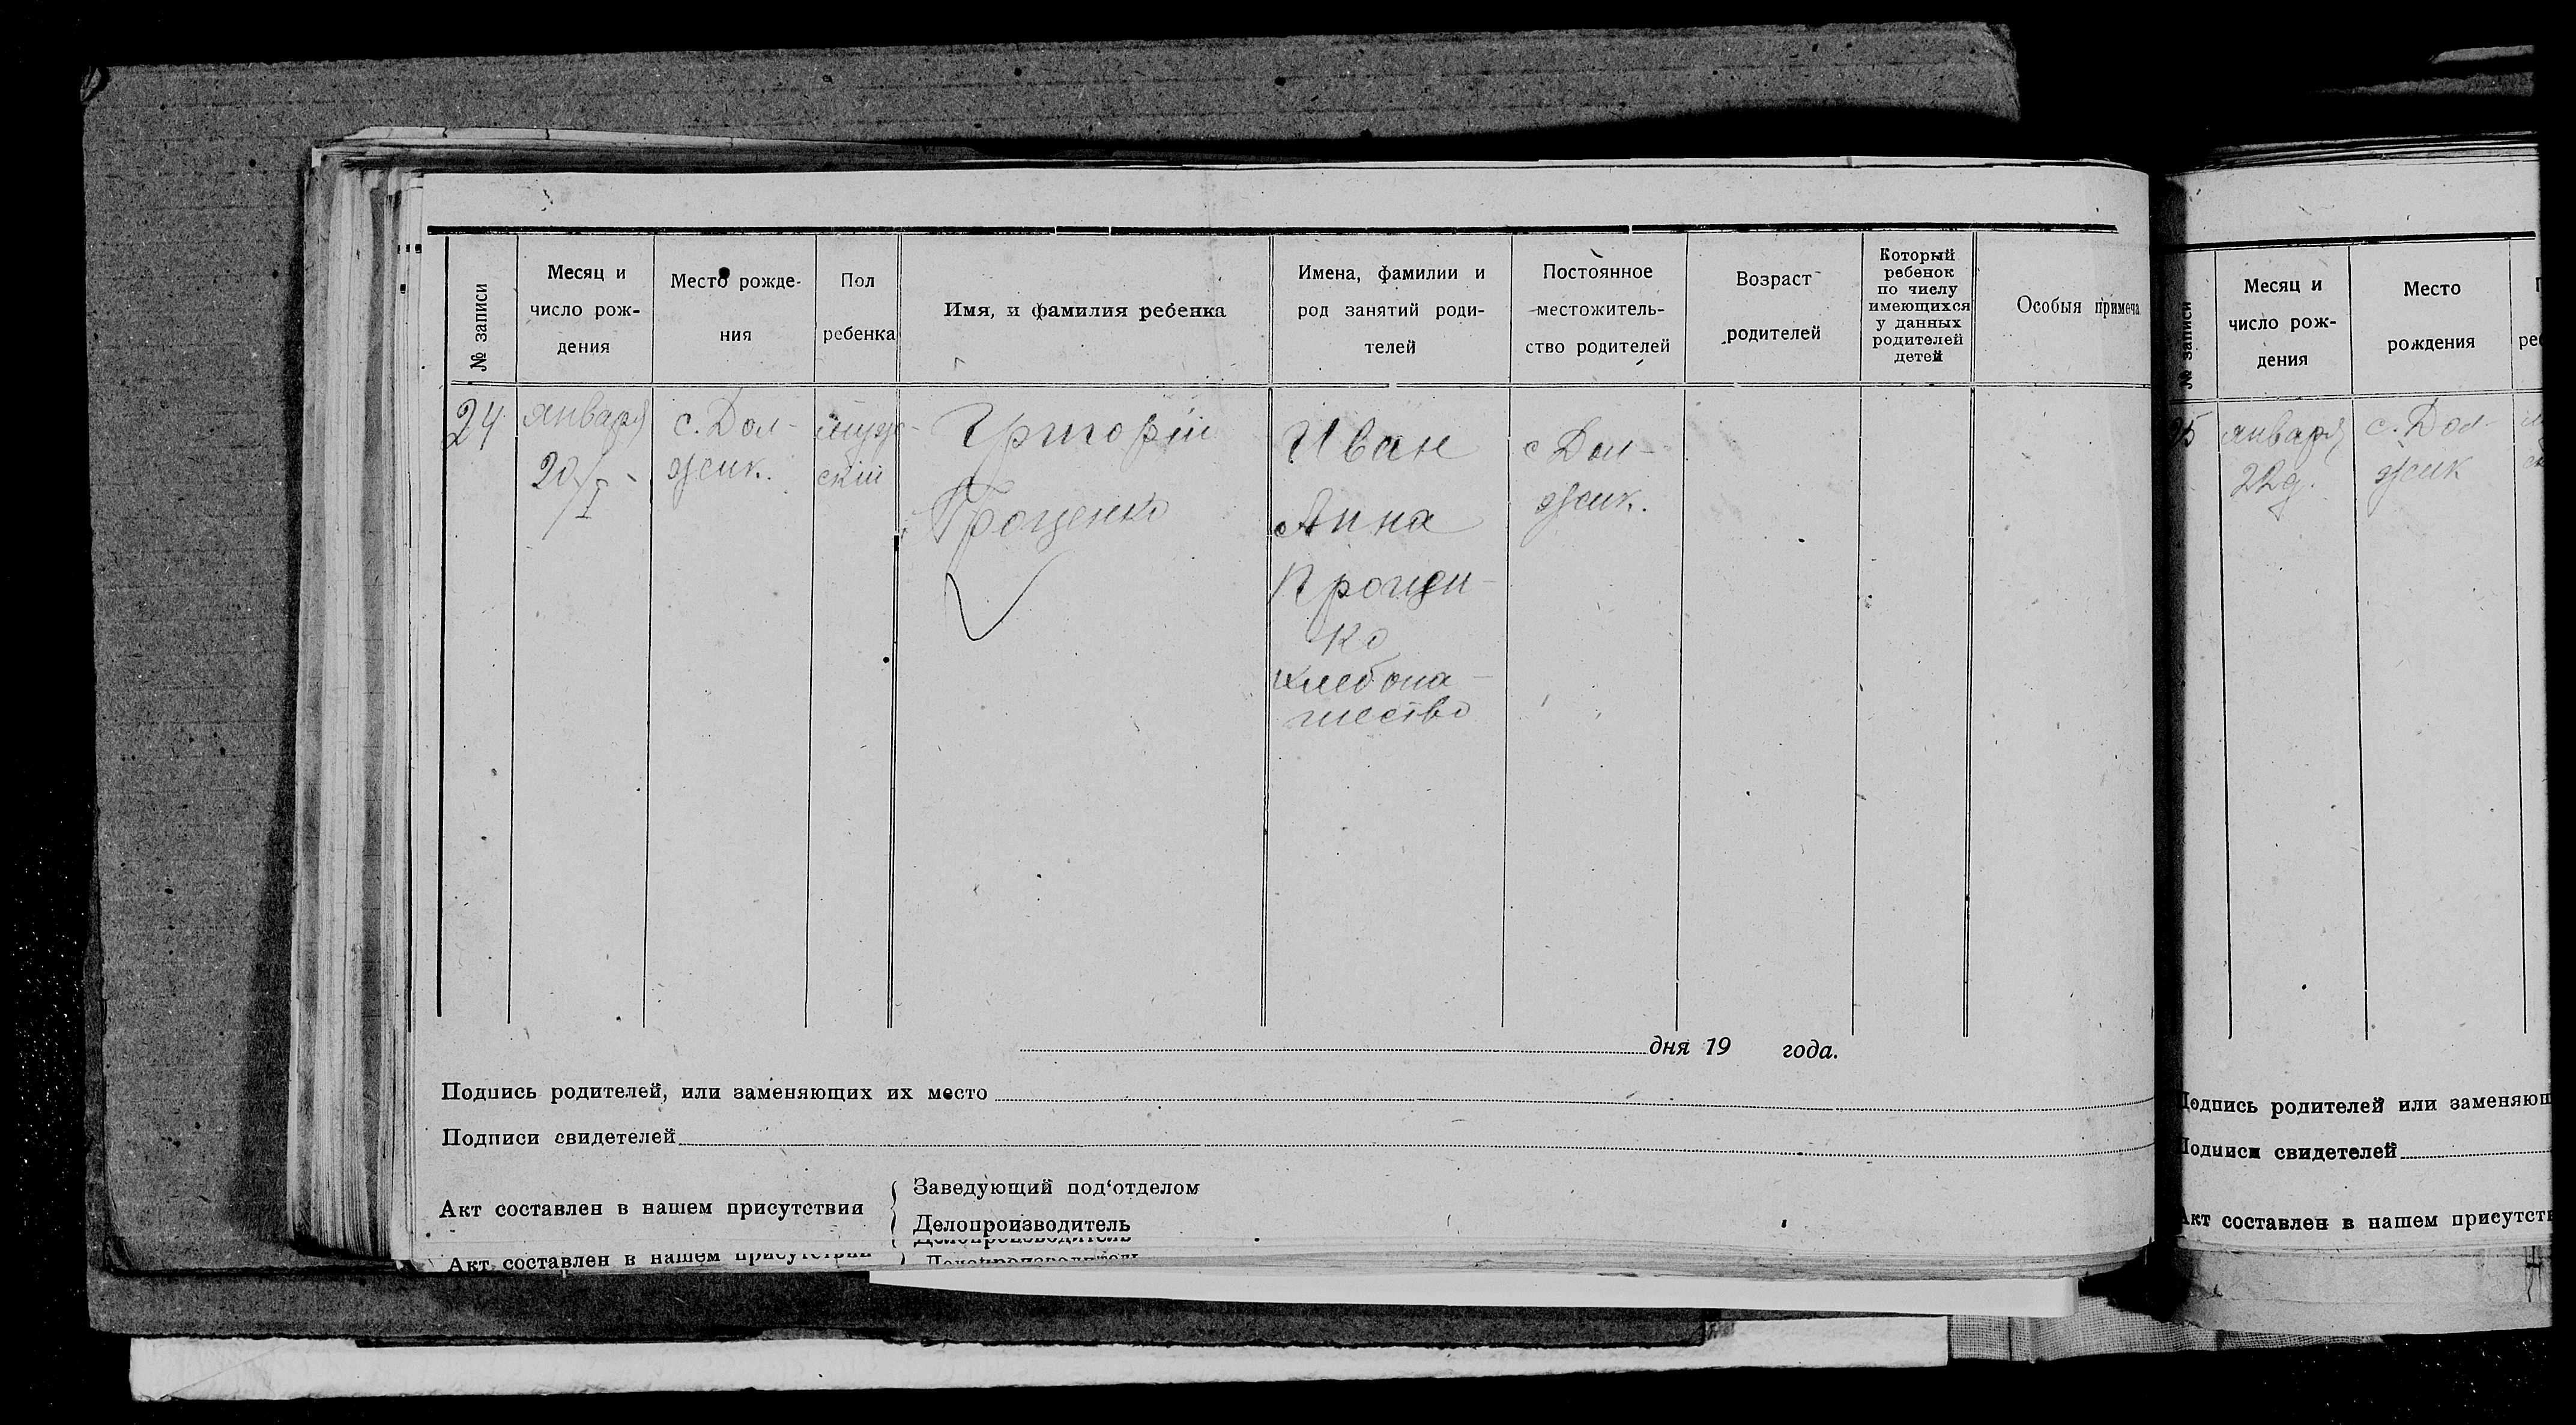 № записи
Месяц и
число рож-
дения
Место рожде-
ния
Пол
ребенка
Имя, и фамилия ребенка
Имена, фамилии и
род занятий роди-
телей
Постоянное
местожитель-
ство родителей
Возраст
родителей
Который
ребенок
по числу
имеющихся
у данных
родителей
детей
Особыя примеча
24
января
20/I
с. Дол-
жик.
муж-
скій
Григорій
Проценко
Иван
Анна
Процен-
ко
хлебопа-
шество
с Дол-
жик.
дня 19 года.
Подпись родителей, или заменяющих их место
Подписи свидетелей
Акт составлен в нашем присутствии
Заведующий под'отделом
Делопроизводитель
Делопроизводитель
Акт составлен в нашем присутствии
Делопроизводитель
№ записи
Месяц и
число рож-
дения
Место
рождения
25
января
22д.
с. Дол-
жик
Подпись родителей или заменяющ
Подписи свидетелей
Акт составлен в нашем присутств